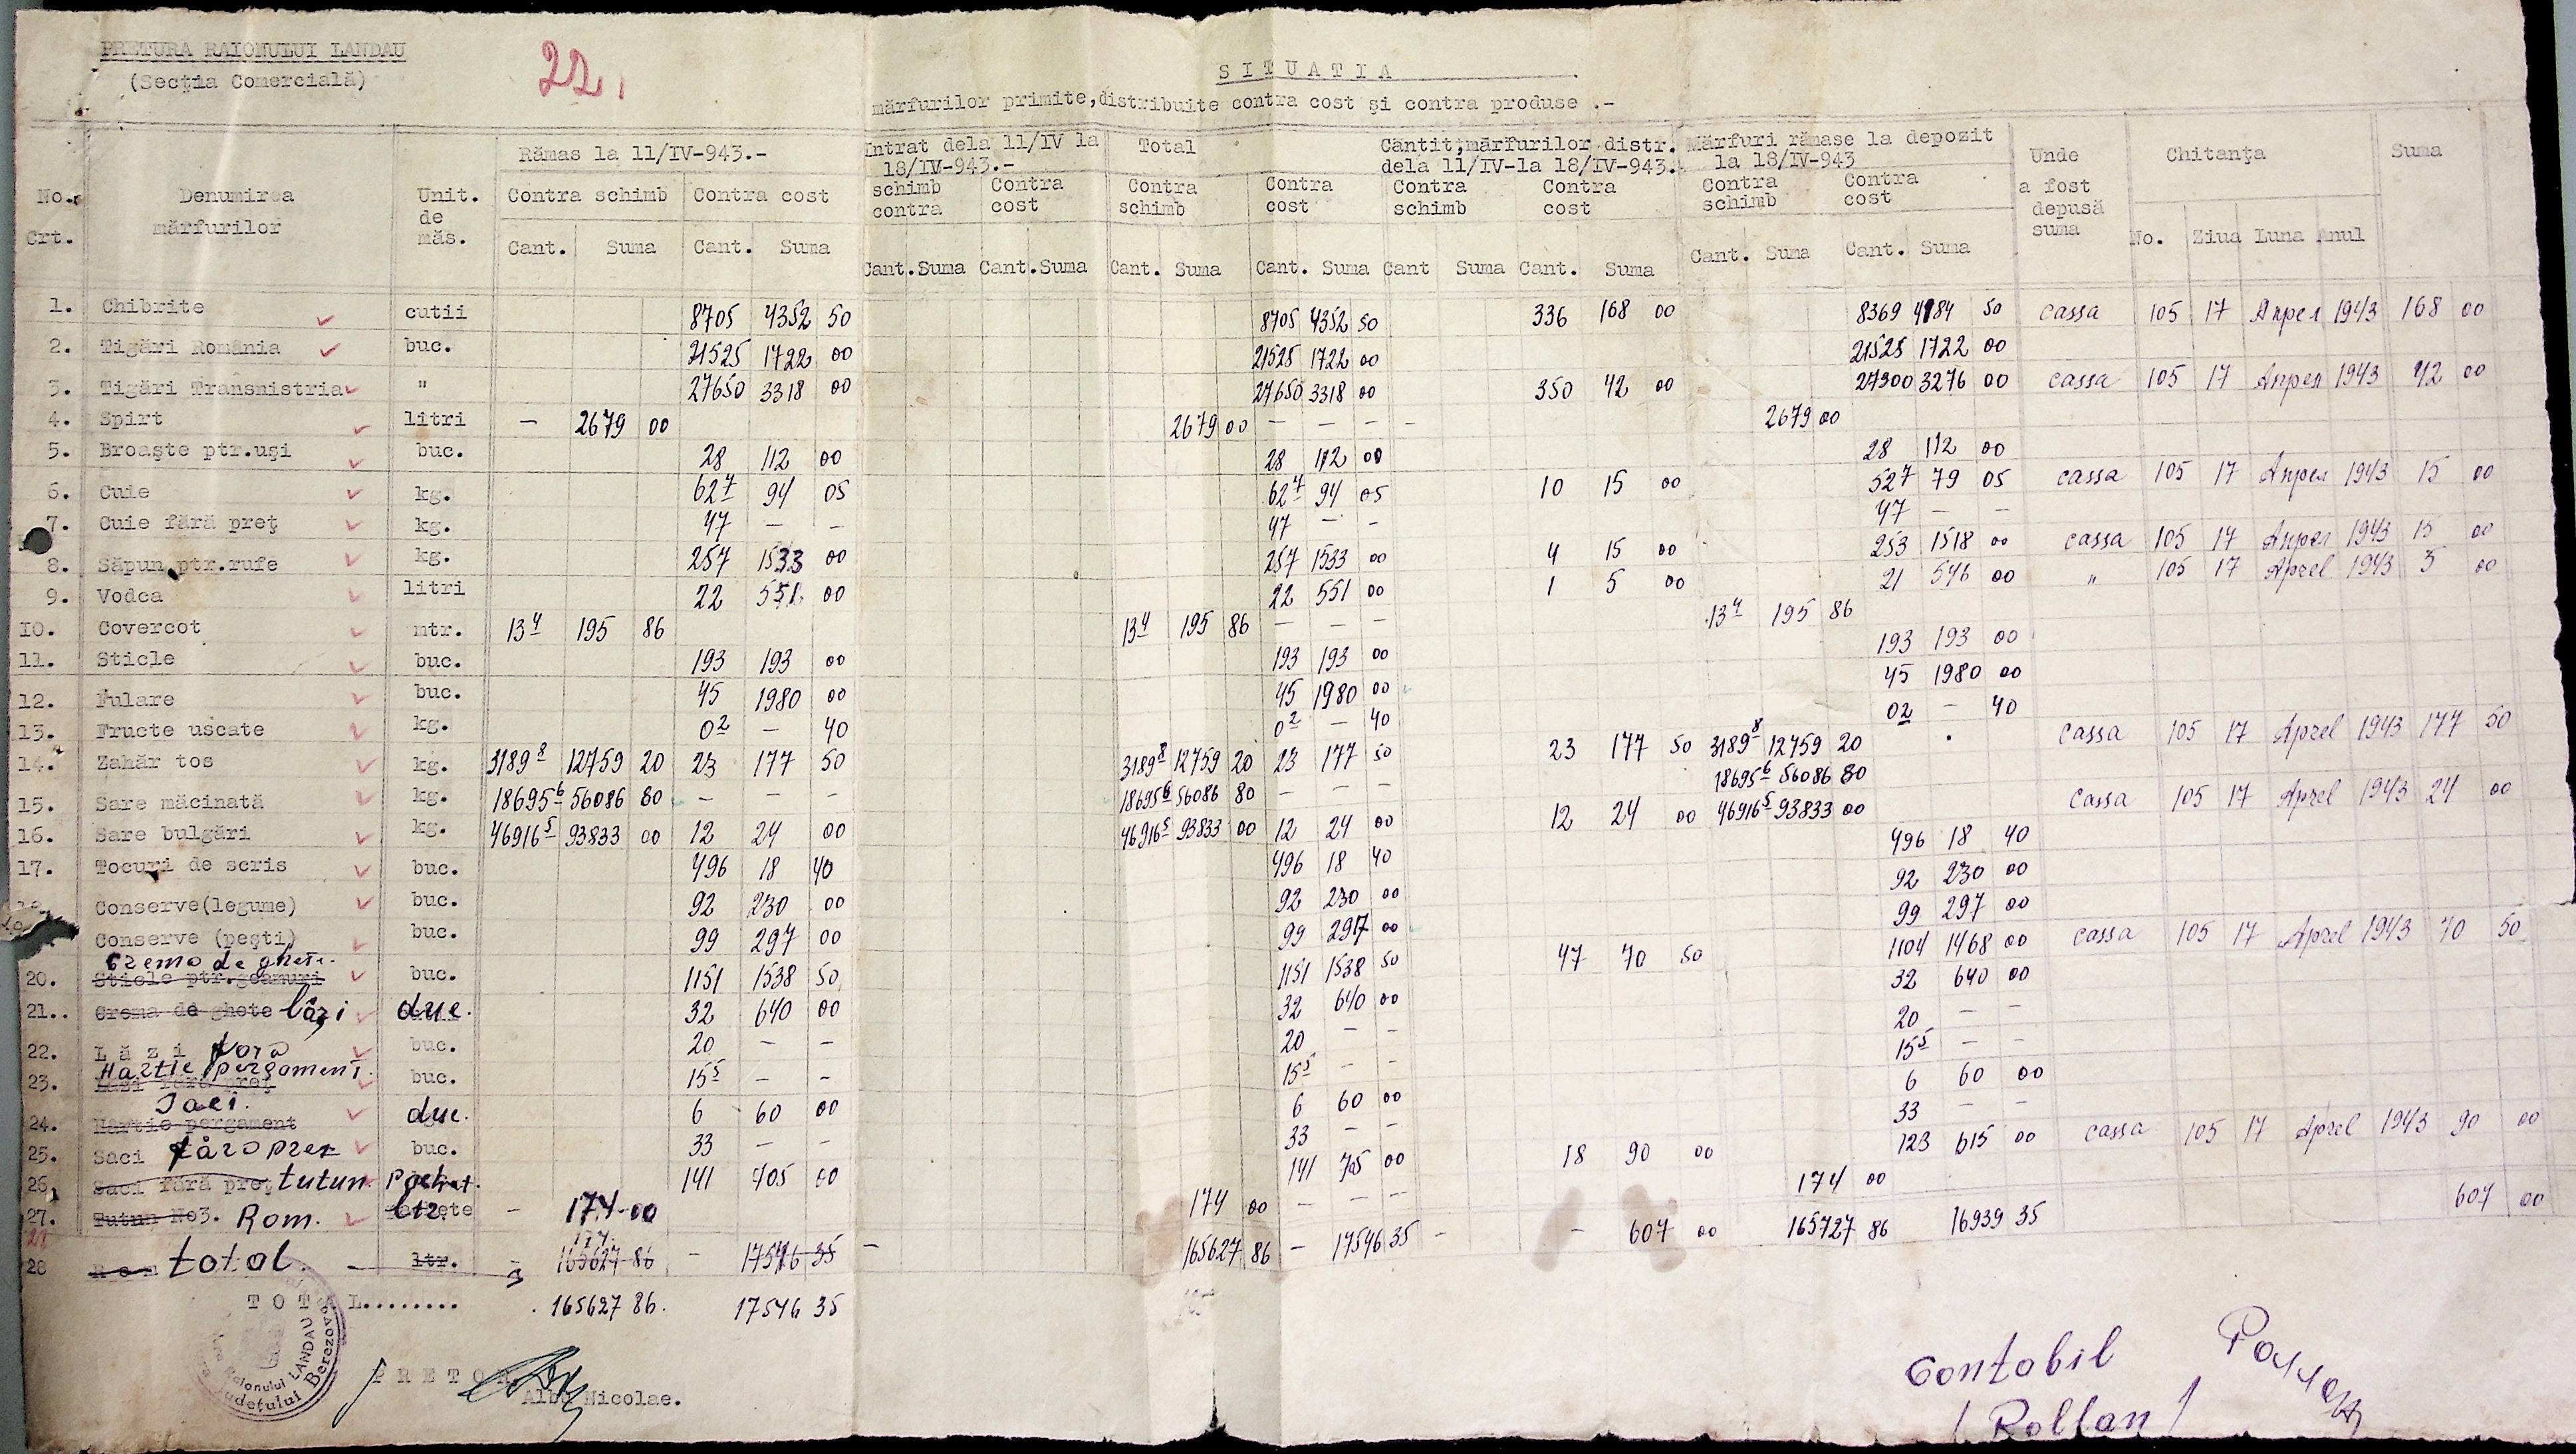 PRETURA RAIONULUI LANDAU
(Secţia Comercială)
22.
S I T U A T I A
mărfurilor primite,distribuite contra cost şi contra produse .-
No. Crt. Denumirea mărfurilor Unit. de măs. Rămas la 11/IV-943.- Intrat dela 11/IV la 18/IV-943.- Total Cantit,mărfurilor distr. dela 11/IV-la 18/IV-943. Mărfuri rămase la depozit la 18/IV-943 Unde a fost depusă suma Chitanţa Suma
Contra schimb Contra cost schimb contra Contra cost Contra schimb Contra cost Contra schimb Contra cost Contra schimb Contra cost No. Ziua Luna Anul
Cant. Suma Cant. Suma Cant. Suma Cant. Suma Cant. Suma Cant. Suma Cant Suma Cant. Suma Cant. Suma Cant. Suma
1. Chibrite cutii 8705 4352 50 8705 4352 50 336 168 00 8369 4184 50 cassa 105 17 1943 168 00
2. Tigări România buc. 21525 1722 00 21525 1722 00 21525 1722 00
3. Tigări Transnistria " 27650 3318 00 27650 3318 00 350 42 00 27300 3276 00 cassa 105 17 1943 42 00
4. Spirt litri - 2679 00 2679 00 - - - - 2679 00
5. Broaşte ptr.uşi buc. 28 112 00 28 112 00 28 112 00
6. Cuie kg. 62 7 94 05 62 7 94 05 10 15 00 52 7 79 05 cassa 105 17 1943 15 00
7. Cuie fără preţ kg. 47 - - 47 - - 47 - -
8. Săpun ptr.rufe kg. 257 1533 00 257 1533 00 4 15 00 253 1518 00 cassa 105 17 1943 15 00
9. Vodca litri 22 551 00 22 551 00 1 5 00 21 546 00 " 105 17 Aprel 1943 5 00
10. Covercot mtr. 13 4 195 86 13 4 195 86 - - - 13 4 195 86
11. Sticle buc. 193 193 00 193 193 00 193 193 00
12. Fulare buc. 45 1980 00 45 1980 00 45 1980 00
13. Fructe uscate kg. 0 2 - 40 0 2 - 40 02 - 40
14. Zahăr tos kg. 3189 8 12759 20 23 177 50 3189 8 12759 20 23 177 50 23 177 50 3189 8 12759 20 cassa 105 17 Aprel 1943 177 50
15. Sare măcinată kg. 18695 6 56086 80 - - - 18695 6 56086 80 - - - 18695 6 56086 80
16. Sare bulgări kg. 46916 5 93833 00 12 24 00 46916 5 93833 00 12 24 00 12 24 00 46916 5 93833 00 cassa 105 17 Aprel 1943 24 00
17. Tocuri de scris buc. 496 18 40 496 18 40 496 18 40
Conserve(legume) buc. 92 230 00 92 230 00 92 230 00
Conserve (peşti) buc. 99 297 00 99 297 00 99 297 00
Crema de ghete
20. Sticle ptr.geamuri buc. 1151 1538 50 1151 1538 50 47 70 50 1104 1468 00 cassa 105 17 Aprel 1943 70 50
21.. Crema de ghete lăzi 32 640 00 32 640 00 32 640 00
22. L ă z i fora buc. 20 - - 20 - - 20 -
Hartie pergament
23. Lăzi fără preţ buc. 15 5 - - 15 5 - - 15 5 - -
Saci.
24. Hartie pergament 6 60 00 6 60 00 6 60 00
25. Saci făro prez buc. 33 - - 33 - - 33 - -
26. Saci fără preţ tutun 141 705 00 141 705 00 18 90 00 123 615 00 cassa 105 17 Aprel 1943 90 00
27. Tutun No3. Rom. - 174 00 174 00 - - - 174 00
28 total. ltr. 165627 86 - 17546 35 - 165627 86 - 17546 35 - - 607 00 165727 86 16939 35 607 00
T O T A L........ 165627 86. 17546 35
P R E T O R
Albu Nicolae.
Raionului LANDAU
Judeţului Berezovca
Contabil
/ Rollan /